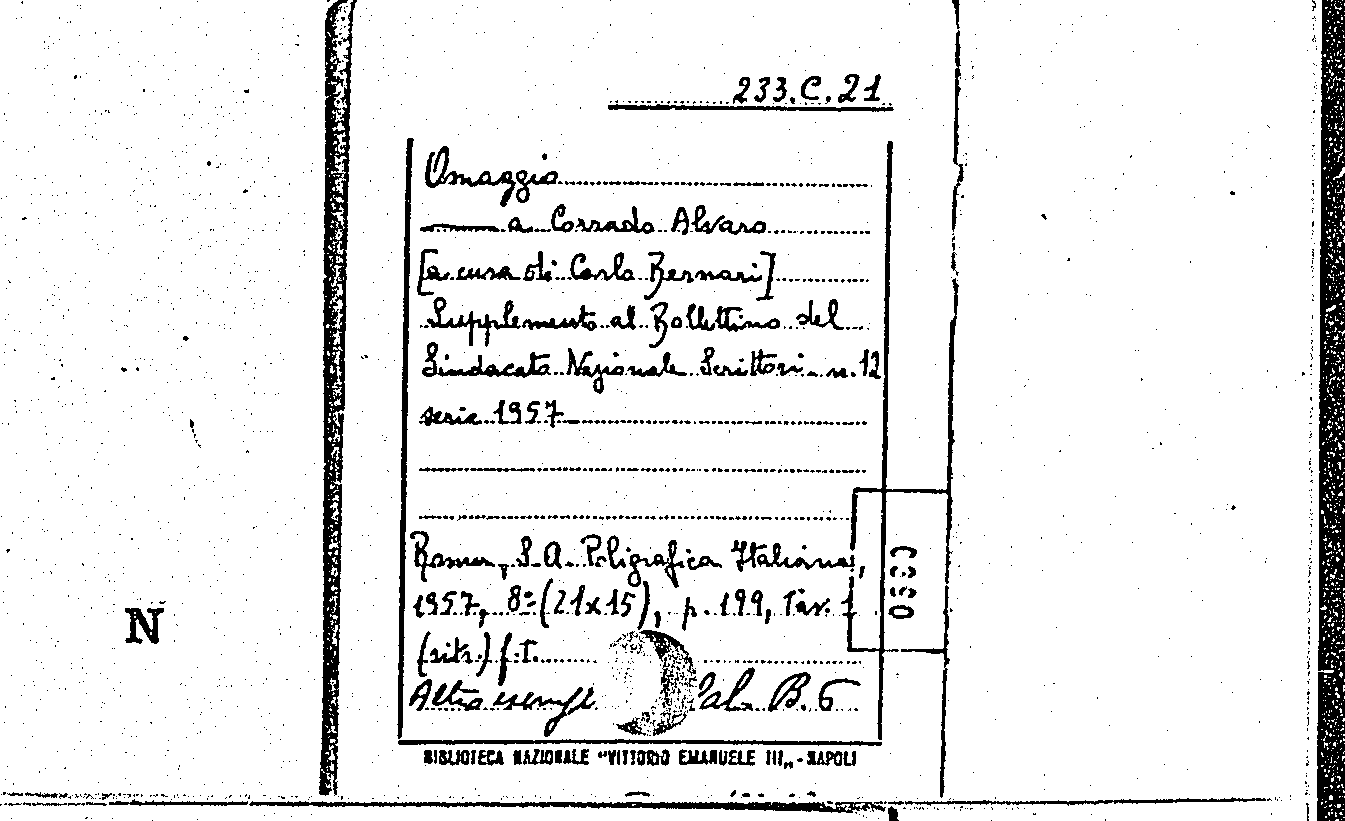 233.C.21
Omaggio
——— a Corrado Alvaro
[a cura di Carlo Bernari]
Supplemento al Bollettino del
Sindacato Nazionale Scrittori - n. 12
serie 1957
Roma, S.A. Poligrafica Italiana,
1957, 8º (21x15), p. 199, Tav. 1
(ritr.) f.t.
Altro esempl
B. 6
BIBLIOTECA NAZIONALE "VITTORIO EMANUELE III„ - NAPOLI
N